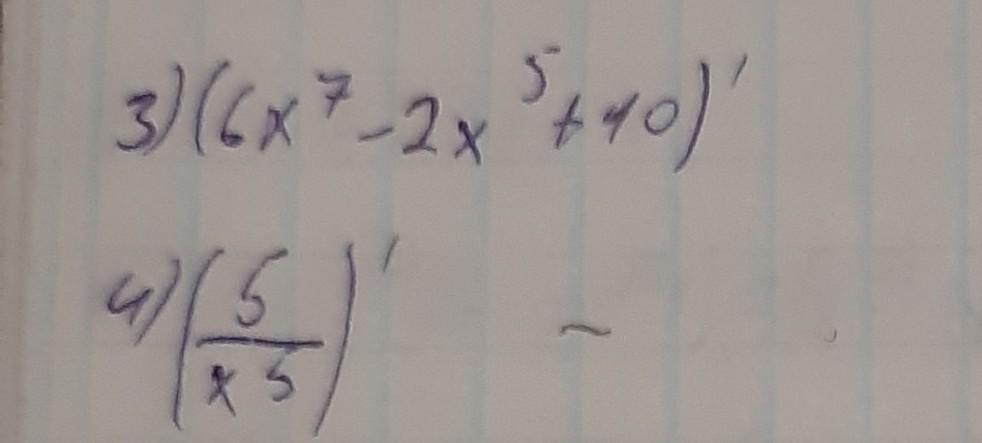 3) (6x⁷ - 2x⁵ + 10)'
4) (5/x⁵)'